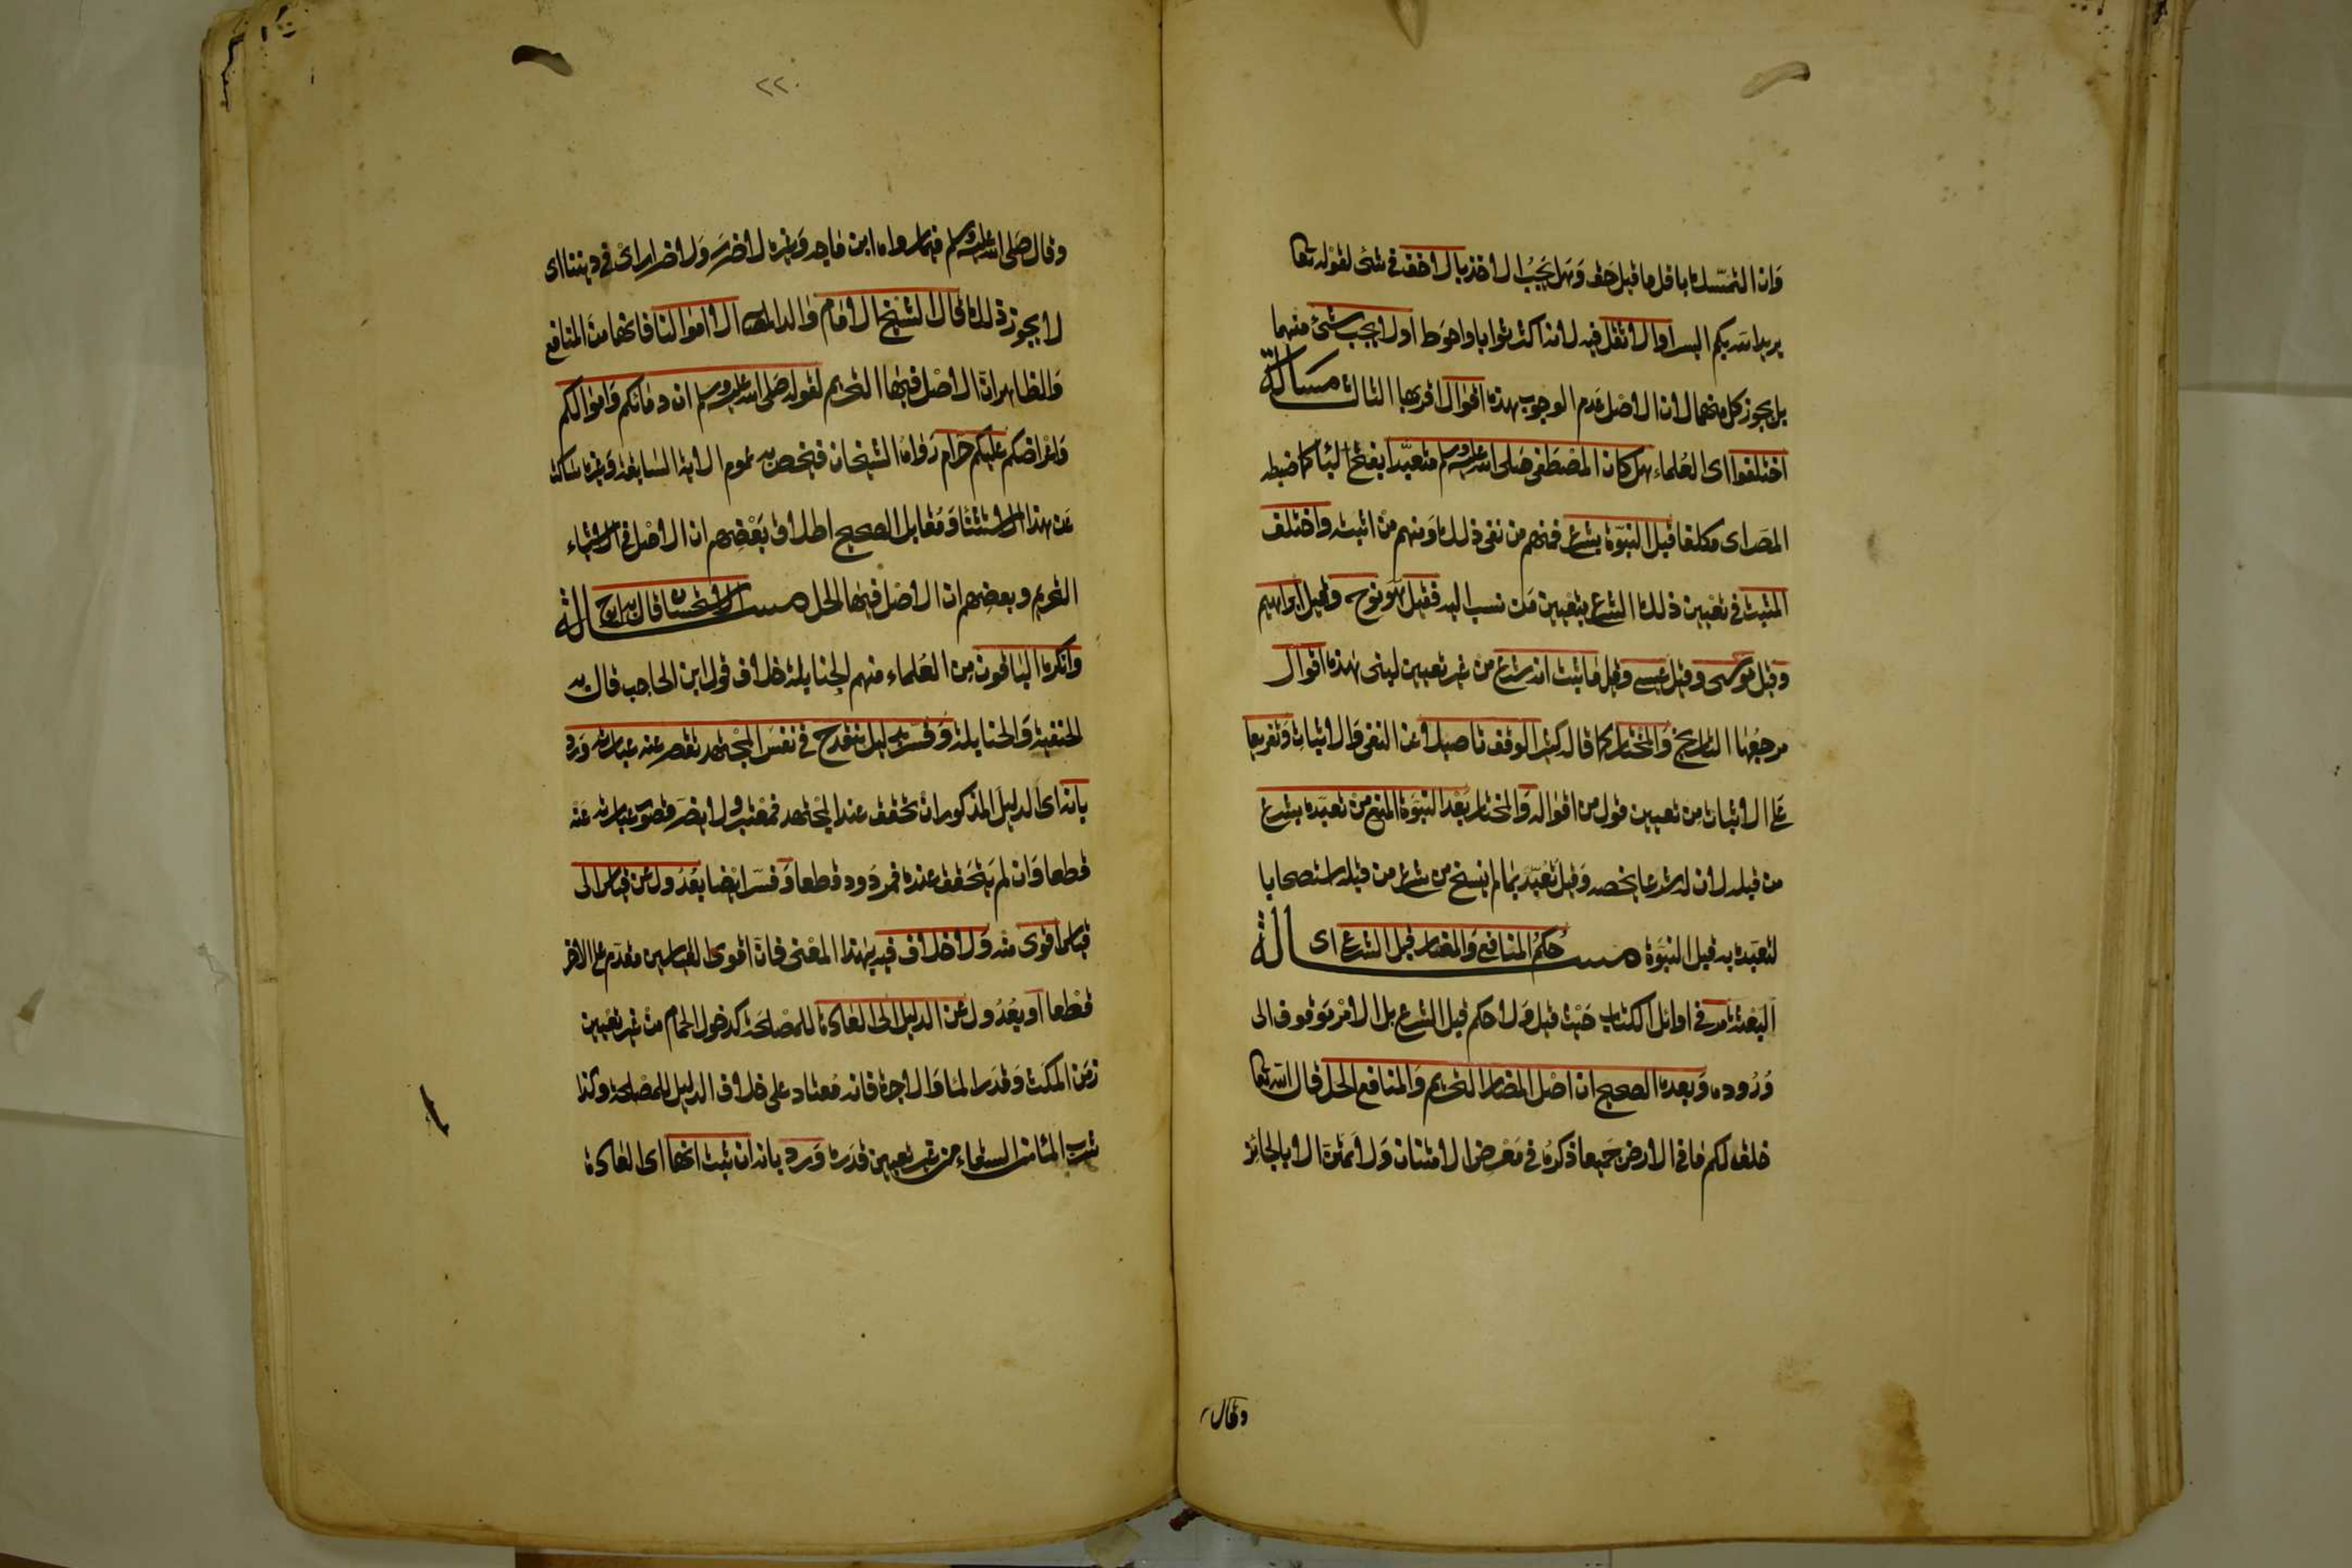 وان التمسك باقل ما قيل حق وهل يجب الاخذ بالاخف في شئ لقوله تعا
يريد الله بكم اليسر او الاثقل فيه لانه اكثر ثوابا واحوط او لا يجب شئ منهما
بل يجوز كل منهما لان الاصل عدم الوجوب هذه اقوال اقربها الثالث مسألة
اختلفوا اى العلماء هل كان المصطفى صلى الله عليه وسلم متعبدا بفتح البا كما ضبطه
المص اى مكلفا قبل النبوة بشرع فمنهم من نفى ذلك ومنهم من اثبته واختلف
المثبت في تعيين ذلك الشرع بتعيين من نسب اليه فقيل هو نوح وقيل ابراهيم
وقيل موسى وقيل عيسى وقيل ما ثبت انه شرع من غير تعيين لنبى هذه اقوال
مرجعها التاريخ والمختار كما قاله كثير الوقف تاصيلا عن النفى والاثبات وتفريعا
على الاثبات من تعيين قول من اقواله والمختار بعد النبوة المنع من تعبده بشرع
من قبله لان له شرعا يخصه وقيل تعبد بما لم ينسخ من شرع من قبله استصحابا
لتعبده به قبل النبوة مسـالة حكم المنافع والمضار قبل الشرع اى
البعثة مر في اوائل الكتاب حيث قيل ولا حكم قبل الشرع بل الامر موقوف الى
وروده وبعده الصحيح ان اصل المضار التحريم والمنافع الحل قال الله تعا
خلق لكم ما في الارض جميعا ذكره في معرض الامتنان ولا يمتن الا بالجائز
وقال
٢٢٠
وقال صلى الله عليه وسلم فيما رواه ابن ماجه وغيره لا ضرر ولا ضرار اى في ديننا اى
لا يجوز ذلك قال الشيخ الامام والد المص الا اموالنا فانها من المنافع
والظاهر ان الاصل فيها التحريم لقوله صلى الله عليه وسلم ان دماءكم واموالكم
واعراضكم عليكم حرام رواه الشيخان فيخص به عموم الاية السابقة وغيره ساكت
عن هذا الاستثنا ومقابل الصحيح اطلاق بعضهم ان الاصل في الاشياء
التحريم وبعضهم ان الاصل فيها الحل مسـالة الاستحسان قال به ابو ح
وانكره الباقون من العلماء منهم الحنابلة خلاف قول ابن الحاجب قال به
الحنفية والحنابلة وفسر بدليل ينقدح في نفس المجتهد تقصر عنه عبارته ورد
بانه اى الدليل المذكور ان تحقق عند المجتهد فمعتبر ولا يضر قصور عبارته عنه
قطعا وان لم يتحقق عنده فمردود قطعا وفسر ايضا بعدول عن قياس الى
قياس اقوى منه ولا خلاف فيه بهذا المعنى فان اقوى القياسين مقدم على الاخر
قطعا او بعدول عن الدليل الى العادة للمصلحة كدخول الحمام من غير تعيين
زمن المكث وقدر الما والاجرة فانه معتاد على خلاف الدليل للمصلحة وكذا
شرب الما من السقاء من غير تعيين قدره ورد بانه ان ثبت انها اى العادة